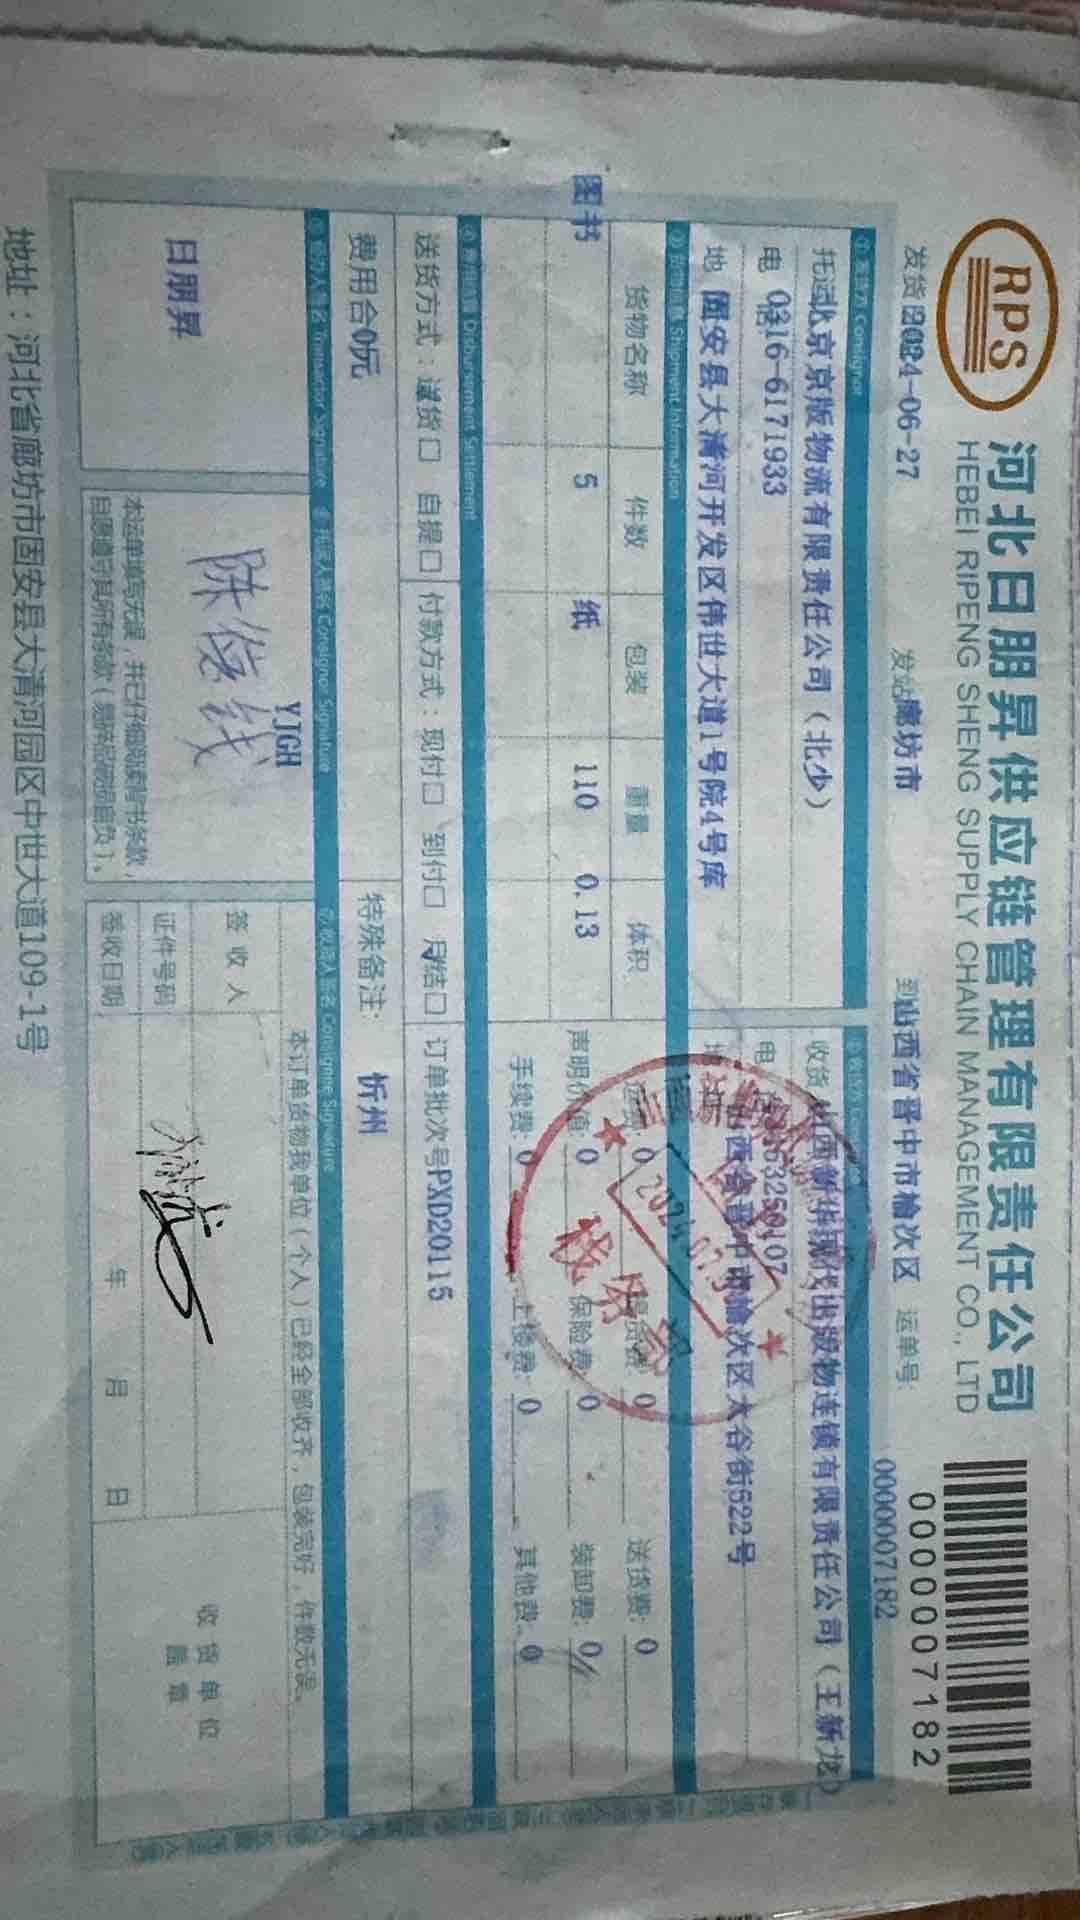 RPS
河北日朋昇供应链管理有限责任公司
HEBEI RIPENG SHENG SUPPLY CHAIN MANAGEMENT CO., LTD
0000007182
发货 2024-06-27 发站 廊坊市 到 山西省晋中市榆次区 运单号: 0000007182
① 发货方 Consignor
托运 北京京版物流有限责任公司（北少）
电 0316-6171933
地 固安县大清河开发区伟世大道1号院4号库
收货 山西新华现代出版物连锁有限责任公司（王新龙）
电
山西省晋中市榆次区太谷街522号
③ 货物信息 Shipment Information
货物名称 件数 包装 重量 体积
图书 5 纸 110 0.13
0 提货费: 0 送货费: 0
声明价值: 0 保险费: 0 装卸费: 0
手续费: 0 上楼费: 0 其他费: 0
④ 费用结算 Disbursement Settlement
送货方式： 送货□ 自提□ 付款方式：现付□ 到付□ 月结□ 订单批次号PXD20115
费用合 0元 特殊备注: 忻州
⑤ 经办人签名 Transactor Signature
⑥ 托运人签名 Consignor Signature
⑦ 收货人签名 Consignee Signature
日朋昇
YJGH
本运单填写无误，并已仔细阅读背书条款，
自愿遵守其所有条款
本订单货物我单位（个人）已经全部收齐，包装完好，件数无误。
签收人
证件号码
签收日期 年 月 日
收货单位
盖章
地址：河北省廊坊市固安县大清河园区中世大道109-1号